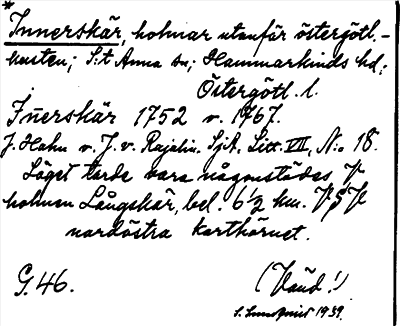 *
Innerskär, holmar utanför östergötl.-
kusten; S:t Anna sn; Hammarkinds hd;
Östergötl. l.
In̄erskär 1752 v. 1767.
J. Hahn v. J. v. Rajalin. SjA. Litt. VII, No 18.
Läget torde vara någonstädes P
holmen Långskär, bel. 6 1/2 km. P § P
nordöstra karthörnet.
G. 46.
(Vänd!)
S. Lundquist 1939.